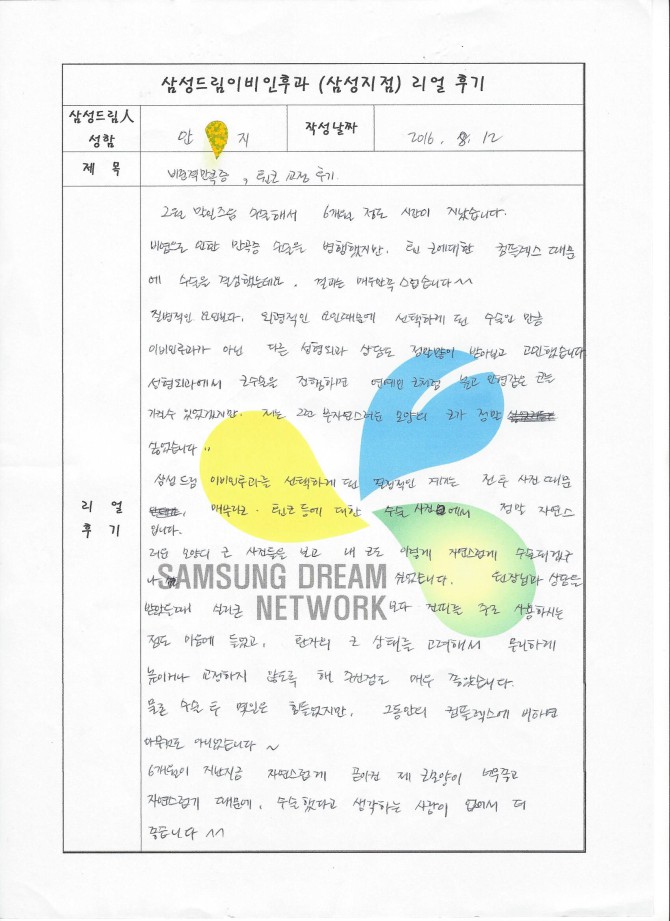 삼성드림이비인후과 (삼성지점) 리얼 후기
삼성드림人
성함
안 지
작성날짜
2016. 8. 12
제 목
비중격만곡증, 휜코 교정 후기.
리 얼
후 기
2월 말일즈음 수술해서 6개월 정도 시간이 지났습니다.
비염으로 인한 만곡증 수술을 병행했지만, 휜 코에대한 컴플렉스 때문
에 수술을 결심했는데요. 결과는 매우만족스럽습니다^^
질병적인 요인보다, 외형적인 요인때문에 선택하게 된 수술인 만큼
이비인후과가 아닌 다른 성형외과 상담도 정말많이 받아보고 고민했습니다
성형외과에서 코수술을 진행하면 연예인 코처럼 높고 인형같은 코를
가질수 있었겠지만, 저는 그런 부자연스러운 모양의 코가 정말
싫었습니다
삼성드림 이비인후과를 선택하게 된 결정적인 계기는 전후 사진 때문
입니다.
매부리코·휜코 등에 대한 수술 사진에서 정말 자연스
러운 모양의 코 사진들을 보고 내 코도 이렇게 자연스럽게 수술되겠구
나 싶었습니다. 원장님과 상담을
SAMSUNG DREAM
NETWORK
받았을때 실리콘 보다 진피를 주로 사용하시는
점도 마음에 들었고, 환자의 코 상태를 고려해서 무리하게
높이거나 교정하지 않도록 해 주신점도 매우 좋았습니다.
물론 수술 후 몇일은 힘들었지만, 그동안의 컴플렉스에 비하면
아무것도 아니었습니다 ~
6개월이 지난지금 자연스럽게 곧아진 제 코모양이 너무좋고
자연스럽기 때문에, 수술했다고 생각하는 사람이 없어서 더
좋습니다 ^^